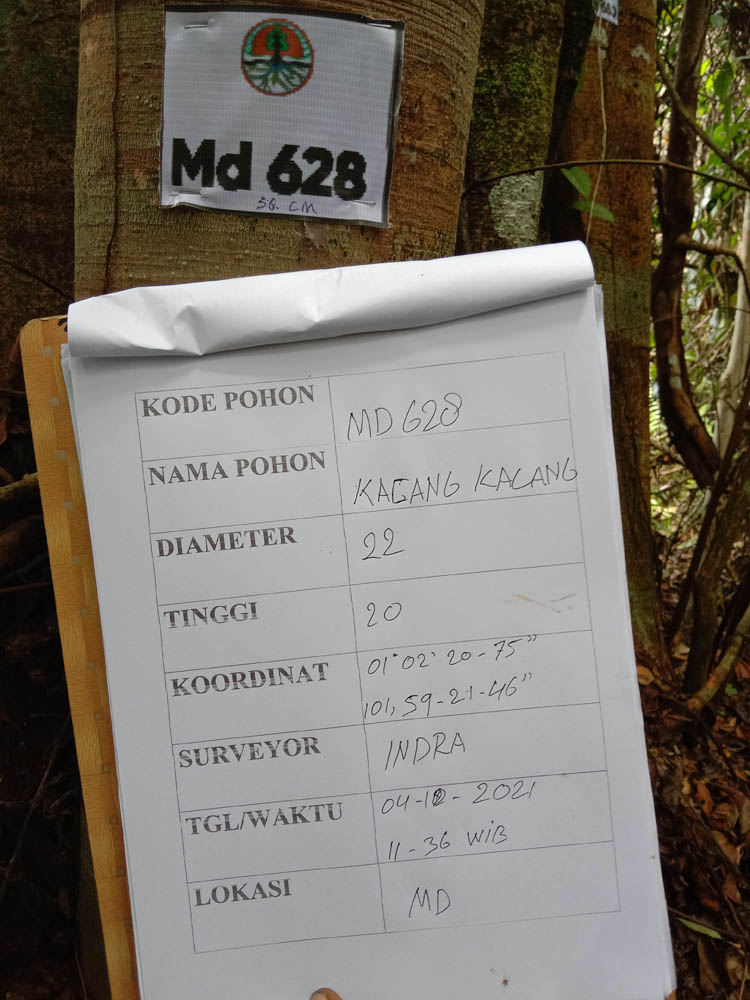 Md 628
56. CM
KODE POHON
MD 628
NAMA POHON
KACANG KACANG
DIAMETER
22
TINGGI
20
KOORDINAT
01° 02' 20-75"
101, 59-21-46"
SURVEYOR
INDRA
TGL/WAKTU
2021
11-36 WIB
LOKASI
MD